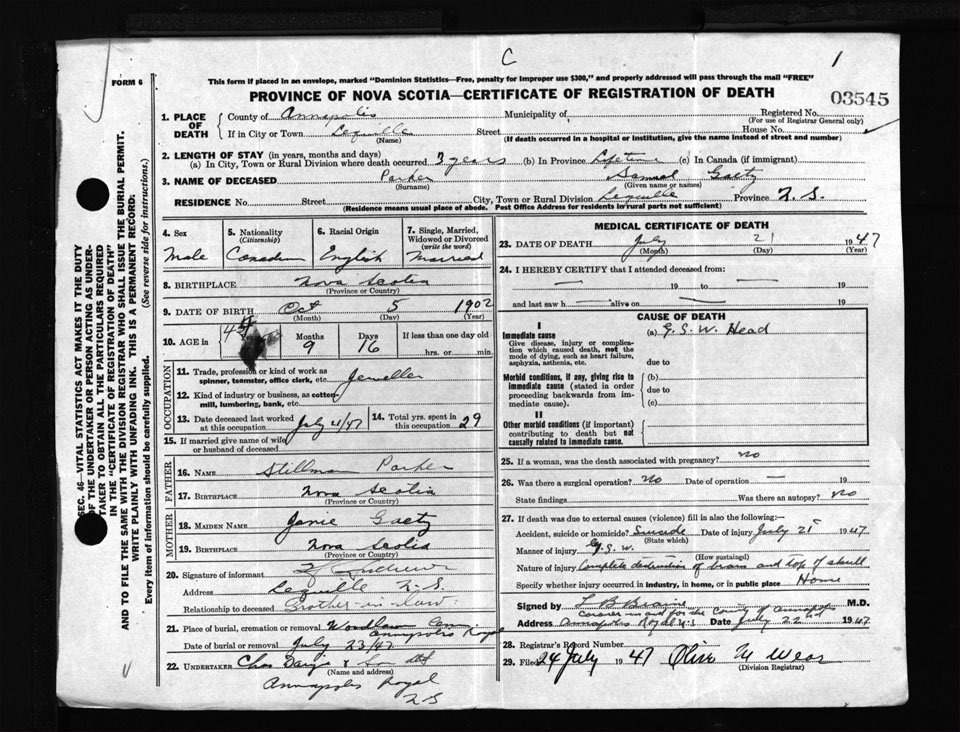 C
1
FORM 6
This form if placed in an envelope, marked "Dominion Statistics—Free, penalty for improper use $300," and properly addressed will pass through the mail "FREE"
PROVINCE OF NOVA SCOTIA—CERTIFICATE OF REGISTRATION OF DEATH
03545
SEC. 46—VITAL STATISTICS ACT MAKES IT THE DUTY
OF THE UNDERTAKER OR PERSON ACTING AS UNDER-
TAKER TO OBTAIN ALL THE PARTICULARS REQUIRED
IN THE "CERTIFICATE OF REGISTRATION OF DEATH"
AND TO FILE THE SAME WITH THE DIVISION REGISTRAR WHO SHALL ISSUE THE BURIAL PERMIT.
WRITE PLAINLY WITH UNFADING INK. THIS IS A PERMANENT RECORD.
Every item of information should be carefully supplied. (See reverse side for instructions.)
1. PLACE OF DEATH
County of Annapolis Municipality of Registered No.
(For use of Registrar General only)
If in City or Town Lequille Street House No.
(Name) (If death occurred in a hospital or institution, give the name instead of street and number)
2. LENGTH OF STAY (in years, months and days)
(a) In City, Town or Rural Division where death occurred 3 years (b) In Province Lifetime (c) In Canada (if immigrant)
3. NAME OF DECEASED Parker Samuel Gaetz
(Surname) (Given name or names)
RESIDENCE No. Street City, Town or Rural Division Lequille Province N.S.
(Residence means usual place of abode. Post Office Address for residents in rural parts not sufficient)
4. Sex
Male
5. Nationality
(Citizenship)
Canadian
6. Racial Origin
English
7. Single, Married, Widowed or Divorced
(write the word)
Married
8. BIRTHPLACE Nova Scotia
(Province or Country)
9. DATE OF BIRTH Oct 5 1902
(Month) (Day) (Year)
10. AGE in 44 Months 9 Days 16 If less than one day old
hrs. or min.
OCCUPATION
11. Trade, profession or kind of work as
spinner, teamster, office clerk, etc. Jeweller
12. Kind of industry or business, as cotton-
mill, lumbering, bank, etc.
13. Date deceased last worked
at this occupation July 21/47
14. Total yrs. spent in
this occupation 29
15. If married give name of wife
or husband of deceased
FATHER
16. NAME Stillman Parker
17. BIRTHPLACE Nova Scotia
(Province or Country)
MOTHER
18. MAIDEN NAME Janie Gaetz
19. BIRTHPLACE Nova Scotia
(Province or Country)
20. Signature of informant
Address Lequille N.S.
Relationship to deceased Brother-in-law
21. Place of burial, cremation or removal Woodlawn Cem.
Annapolis Royal
Date of burial or removal July 23/47
22. UNDERTAKER Chas & Son
(Name and address)
Annapolis Royal
N S
MEDICAL CERTIFICATE OF DEATH
23. DATE OF DEATH July 21 1947
(Month) (Day) (Year)
24. I HEREBY CERTIFY that I attended deceased from:
— 19 to — 19
and last saw h — alive on — 19
CAUSE OF DEATH
I
Immediate cause
Give disease, injury or complica-
tion which caused death, not the
mode of dying, such as heart failure,
asphyxia, asthenia, etc.
(a) G.S.W. Head
due to
Morbid conditions, if any, giving rise to
immediate cause (stated in order
proceeding backwards from im-
mediate cause).
(b)
due to
(c)
II
Other morbid conditions (if important)
contributing to death but not
causally related to immediate cause.
25. If a woman, was the death associated with pregnancy? no
26. Was there a surgical operation? No Date of operation — 19
State findings Was there an autopsy? No
27. If death was due to external causes (violence) fill in also the following:—
Accident, suicide or homicide? Suicide Date of injury July 21 1947
(State which)
Manner of injury G.S.W.
(How sustained)
Nature of injury Complete destruction of brain and top of skull
Specify whether injury occurred in industry, in home, or in public place Home
Signed by L B M.D.
Coroner in and for the County of Annapolis
Address Annapolis Royal N.S. Date July 22nd 1947
28. Registrar's Record Number
29. Filed 24 July 1947 Olive M Wear
(Division Registrar)